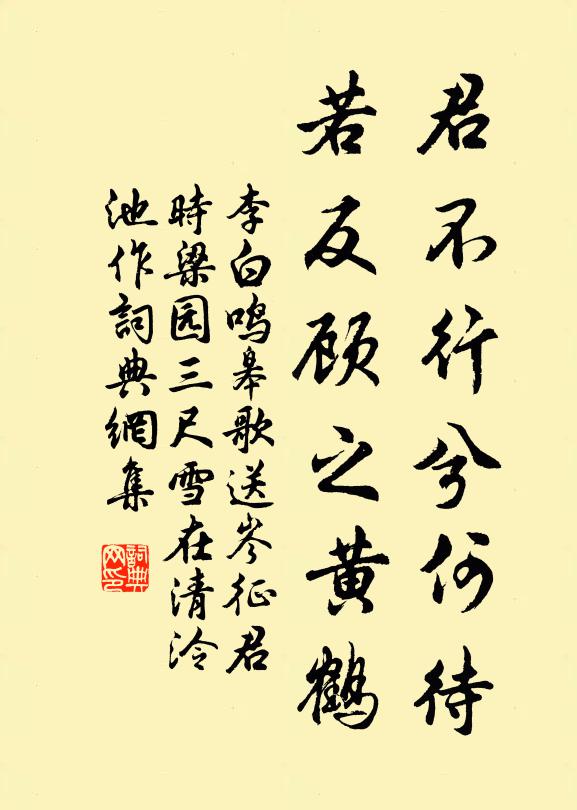 君不行兮何待
若反顾之黄鹤
李白鸣皋歌送岑征君
時梁园三尺雪在清泠
池作詞典網集
詞典
网印